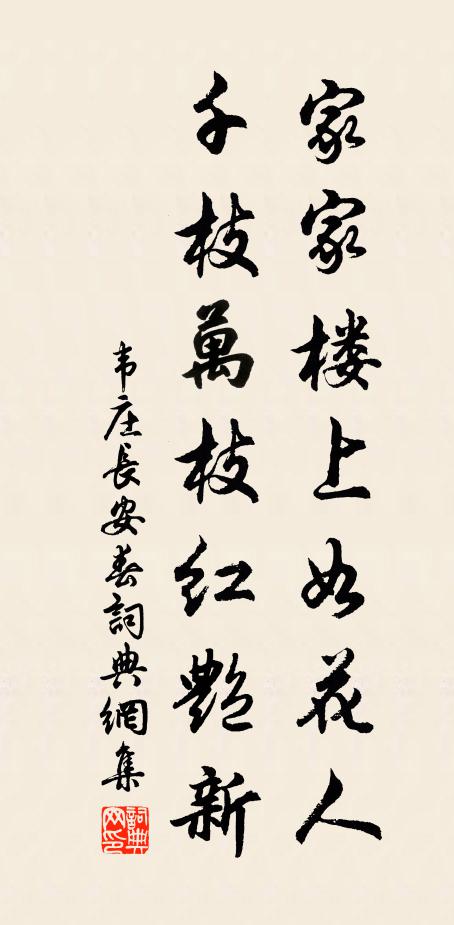 家家楼上如花人
千枝萬枝红艷新
韦庄長安春詞典網集
詞典網印